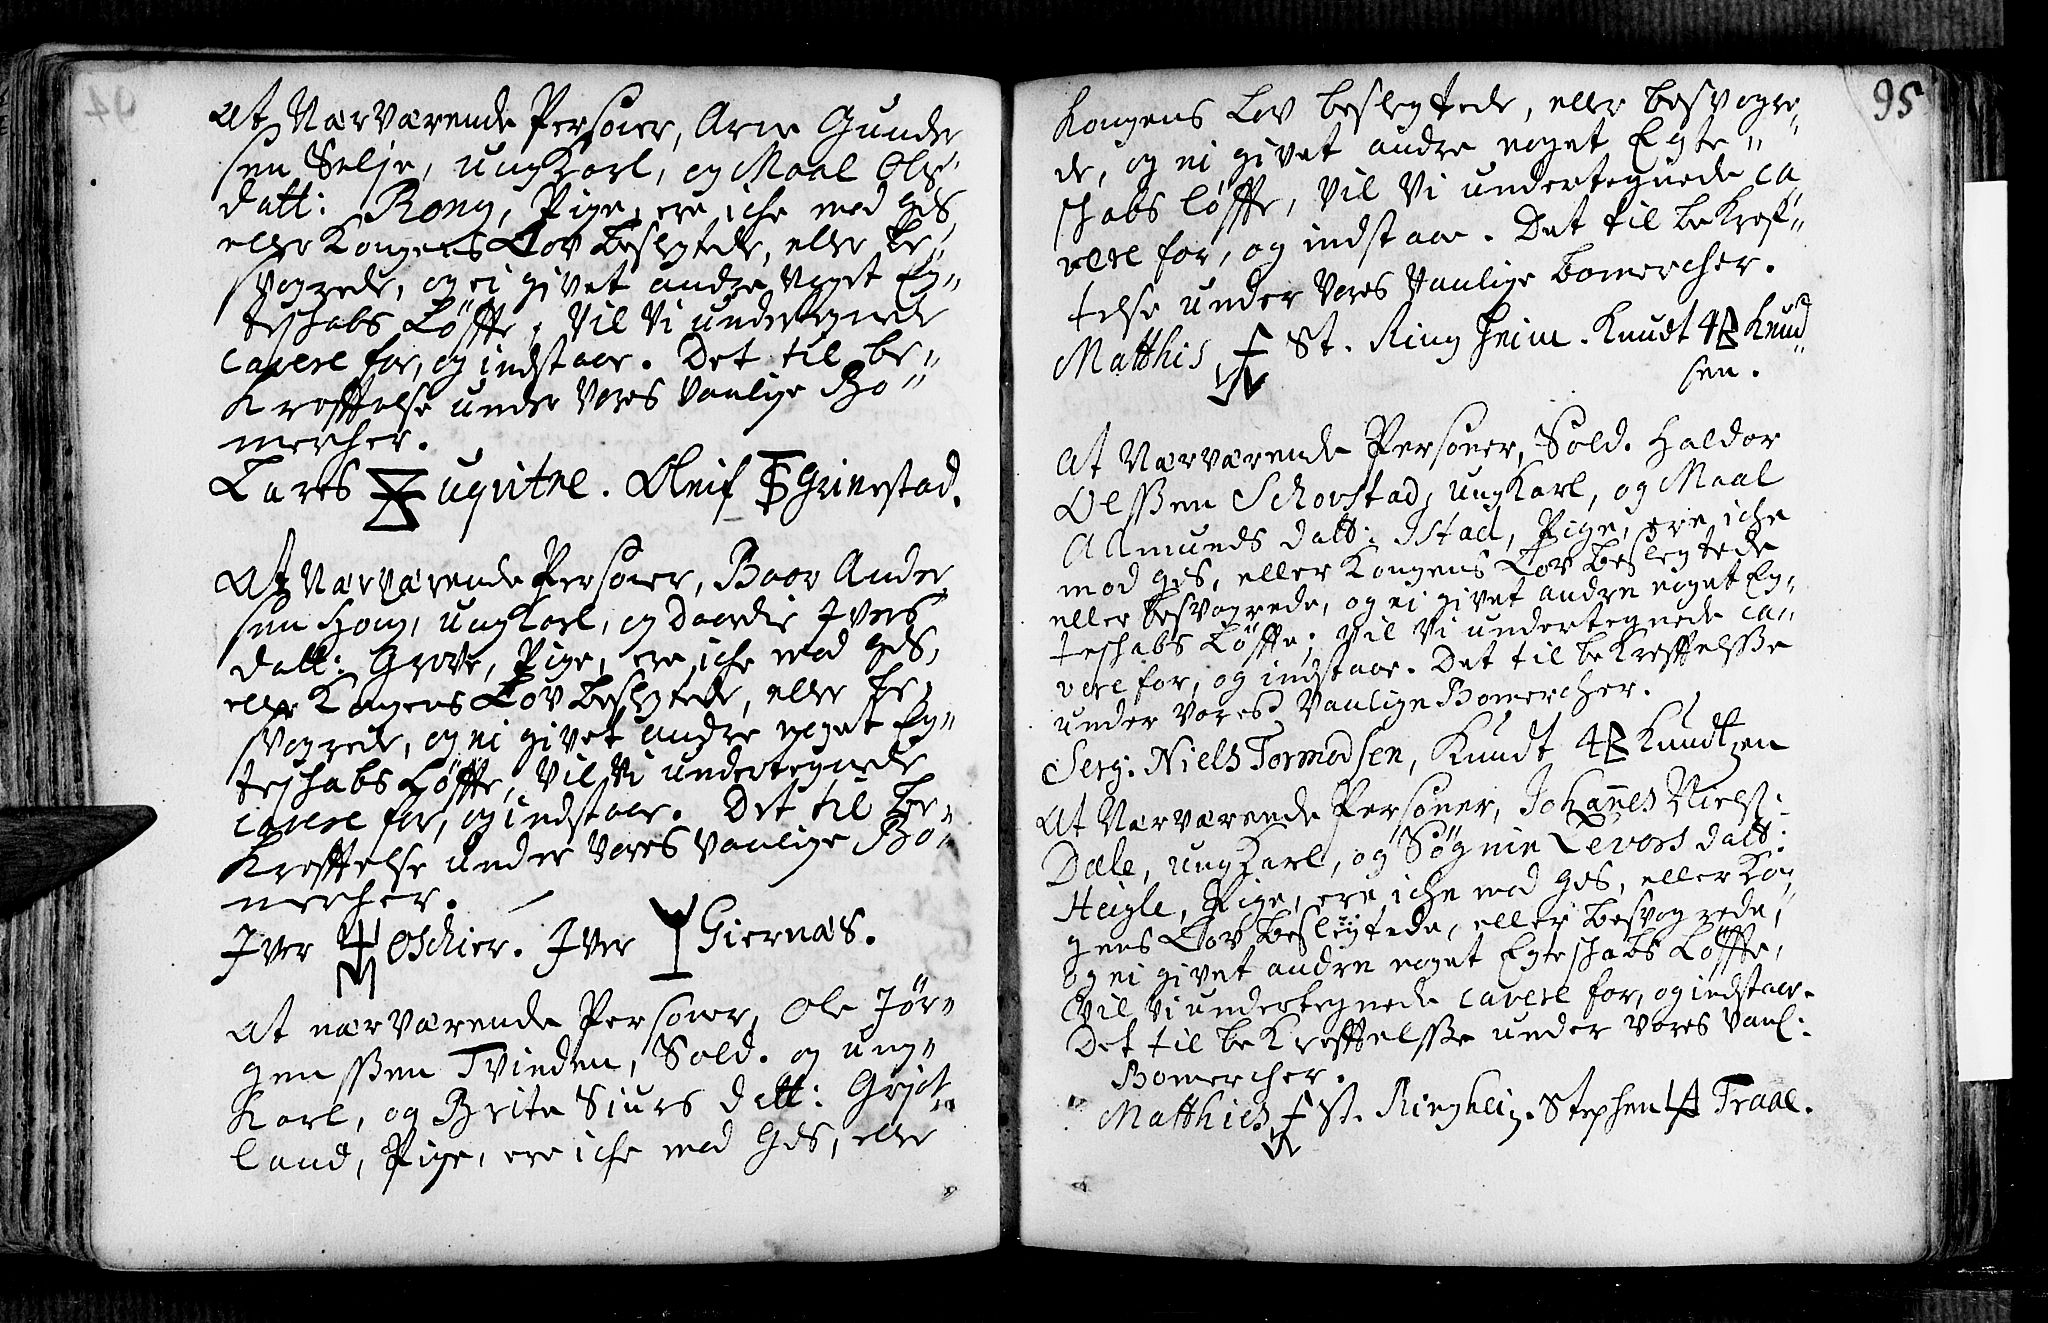 At Nærværende Persouer, Arne Gunder
sen Selje, ungKarl, og Maal Ols
datt: Rong, Pige, ere iche med Gds
eller Kongens Lov beslegtede, eller be„
svogrede, og ei givet andre noget Eg„
teschabs Løffte, Vil Vi undertegnede
cavere for, og indstaae. Det til be„
Kreffttelse under Vores Vanlige Bo„
mercher.
Lares uqvitne. Oleif Grinestad.
At Nærværende Personer, Baar Ander
sen Houg, ungKarl, og Daardie Ivers
datt: Grove, Pige, ere iche med Gds,
eller Kongens Lov beslegtede, eller be„
svogrede, og ei givet andre noget Eg„
teschabs Løffte, Vil Vi undertegnede
cavere for, og indstaae. Det til be„
Kreffttelse under Vores Vanlige Bo„
mercher.
Iver oschier. Iver Giernæs.
At nærværende Personer, Ole Jør„
genssen Tvinden, Sold. og ung„
Karl, og Brita Siurs datt: Grjot„
land, Pige, ere iche med Gds, eller
95
Kongens Lov beslegtede, eller besvogre„
de, og ei givet andre noget Egte„
schabs løffte, Vil Vi undertegnede ca
vere for, og indstaae. Det til beKref„
telse under Vores Vanlige bomercher.
Matthis St. Ringheim. Knudt Knud„
sen.
At Nærværende Personer, Sold. Haldor
Olssen Schorstad, ungKarl, og Maal
Amunds datt: Istad, Pige, ere iche
med Gds, eller Kongens Lov beslegtede
eller besvogrede, og ei givet andre noget Eg„
teschabs Løffte; Vil Vi undertegnede ca„
vere for, og indstaae. Det til beKreffttelsse
under Vores Vanlige Bomercher.
Serg: Niels Tormodsen, Knudt Knudtzen
At Nærværende Personer, Johannes Niels:
Dæle, ungKarl, og Søgnie Levors datt:
Heigle, Pige, ere iche med Gds, eller Kon„
gens Lov beslegtede, eller besvogrede,
og ei givet andre noget Egteschabs Løffte,
Vil Vi undertegnede cavere for, og indstaae.
Det til beKreffttelsse under Vores Vanl:
Bomercher.
Matthies St. Ringheim. Stephen Traae.